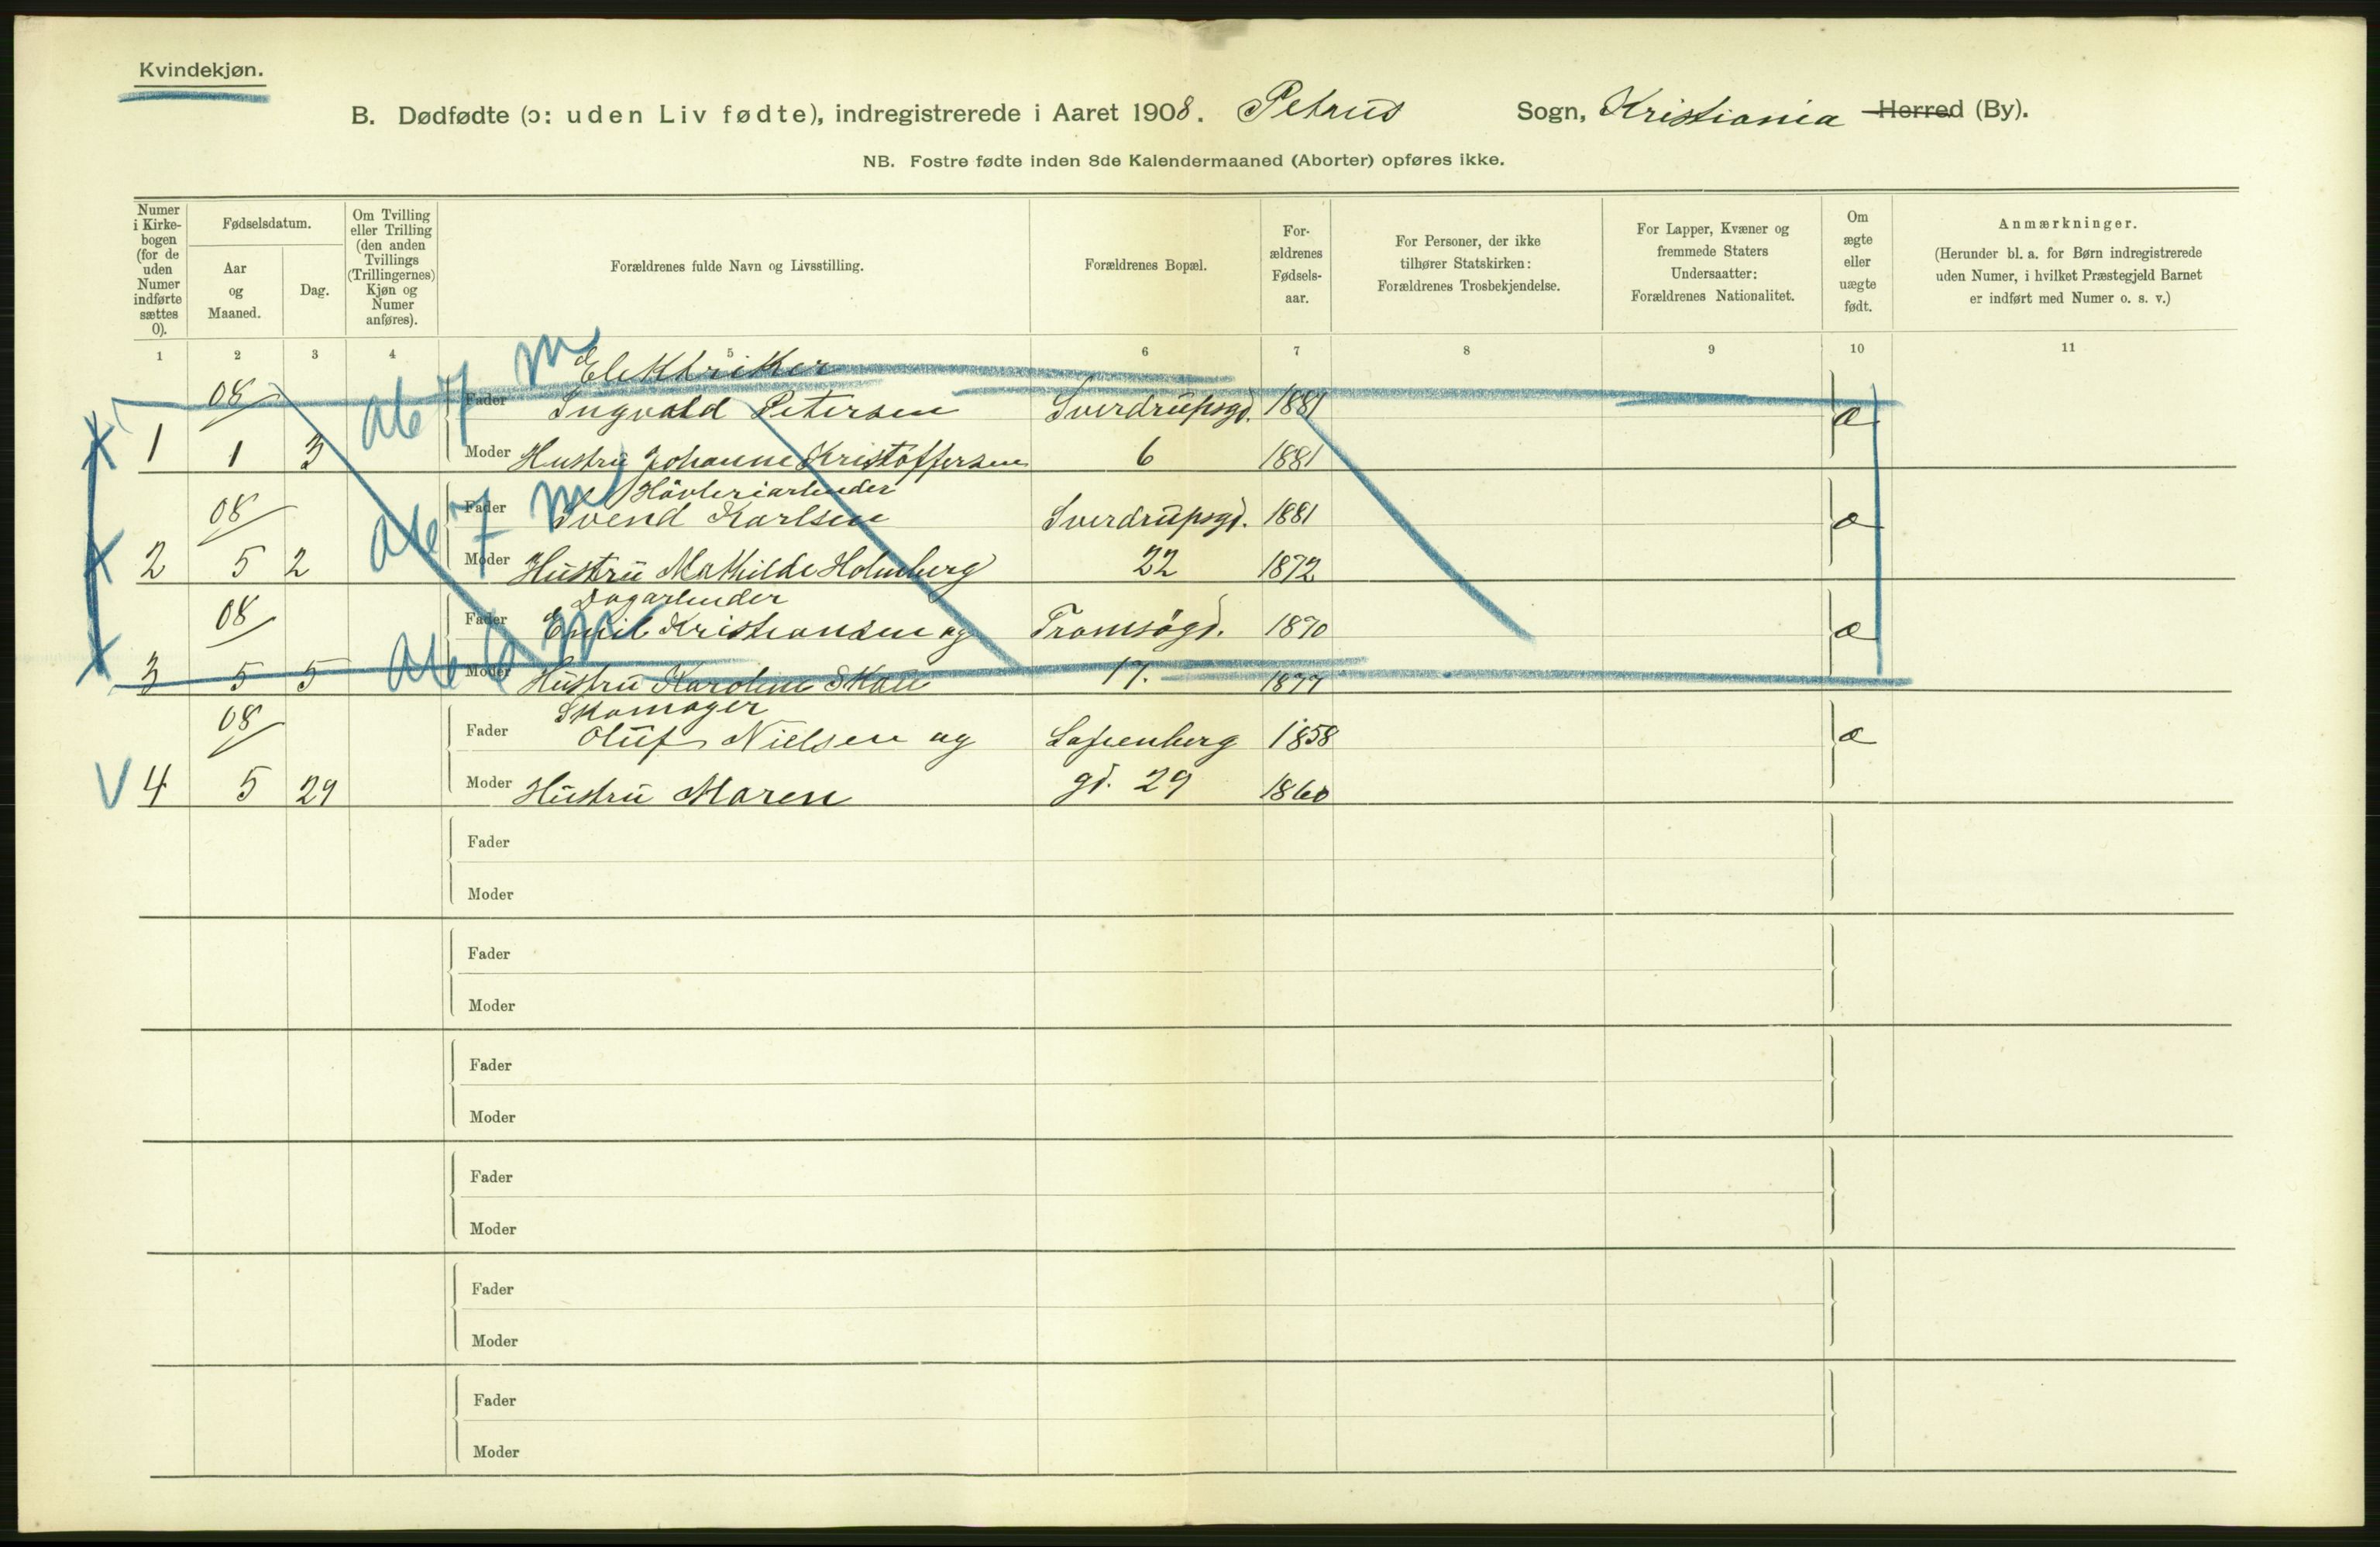 Kvindekjøn.
B. Dødfødte (ɔ: uden Liv fødte), indregistrerede i Aaret 1908. Petrus Sogn, Kristiania Herred (By).
NB. Fostre fødte inden 8de Kalendermaaned (Aborter) opføres ikke.
Numer i Kirkebogen (for de uden Numer indførte sættes 0).
Fødselsdatum.
Aar og Maaned.
Dag.
Om Tvilling eller Trilling (den anden Tvillings (Trillingernes) Kjøn og Numer anføres).
Forældrenes fulde Navn og Livsstilling.
Forældrenes Bopæl.
Forældrenes Fødselsaar.
For Personer, der ikke tilhører Statskirken: Forældrenes Trosbekjendelse.
For Lapper, Kvæner og fremmede Staters Undersaatter: Forældrenes Nationalitet.
Om ægte eller uægte født.
Anmærkninger.
(Herunder bl. a. for Børn indregistrerede uden Numer, i hvilket Præstegjeld Barnet er indført med Numer o. s. v.)
1 2 3 4 5 6 7 8 9 10 11
m Elektriker
08 Fader Ingvald Petersen Sverdrupsgd. 1881 æ
1 1 3 7 Moder Hustru Johanne Kristoffersen 6 1881
m Høvleriarbeider
08 Fader Svend Karlsen Sverdrupsgd. 1881 æ
2 5 2 7 Moder Hustru Mathilde Holmberg 22 1872
Dagarbeider
08 Fader Emil Kristiansen og Tromsøgd. 1870 æ
3 5 5 Moder Hustru Karoline Skau 17. 1877
Skomager
08 Fader Oluf Nielsen og 1858 æ
V 4 5 29 Moder Hustru Maren gd. 29 1860
Fader
Moder
Fader
Moder
Fader
Moder
Fader
Moder
Fader
Moder
Fader
Moder